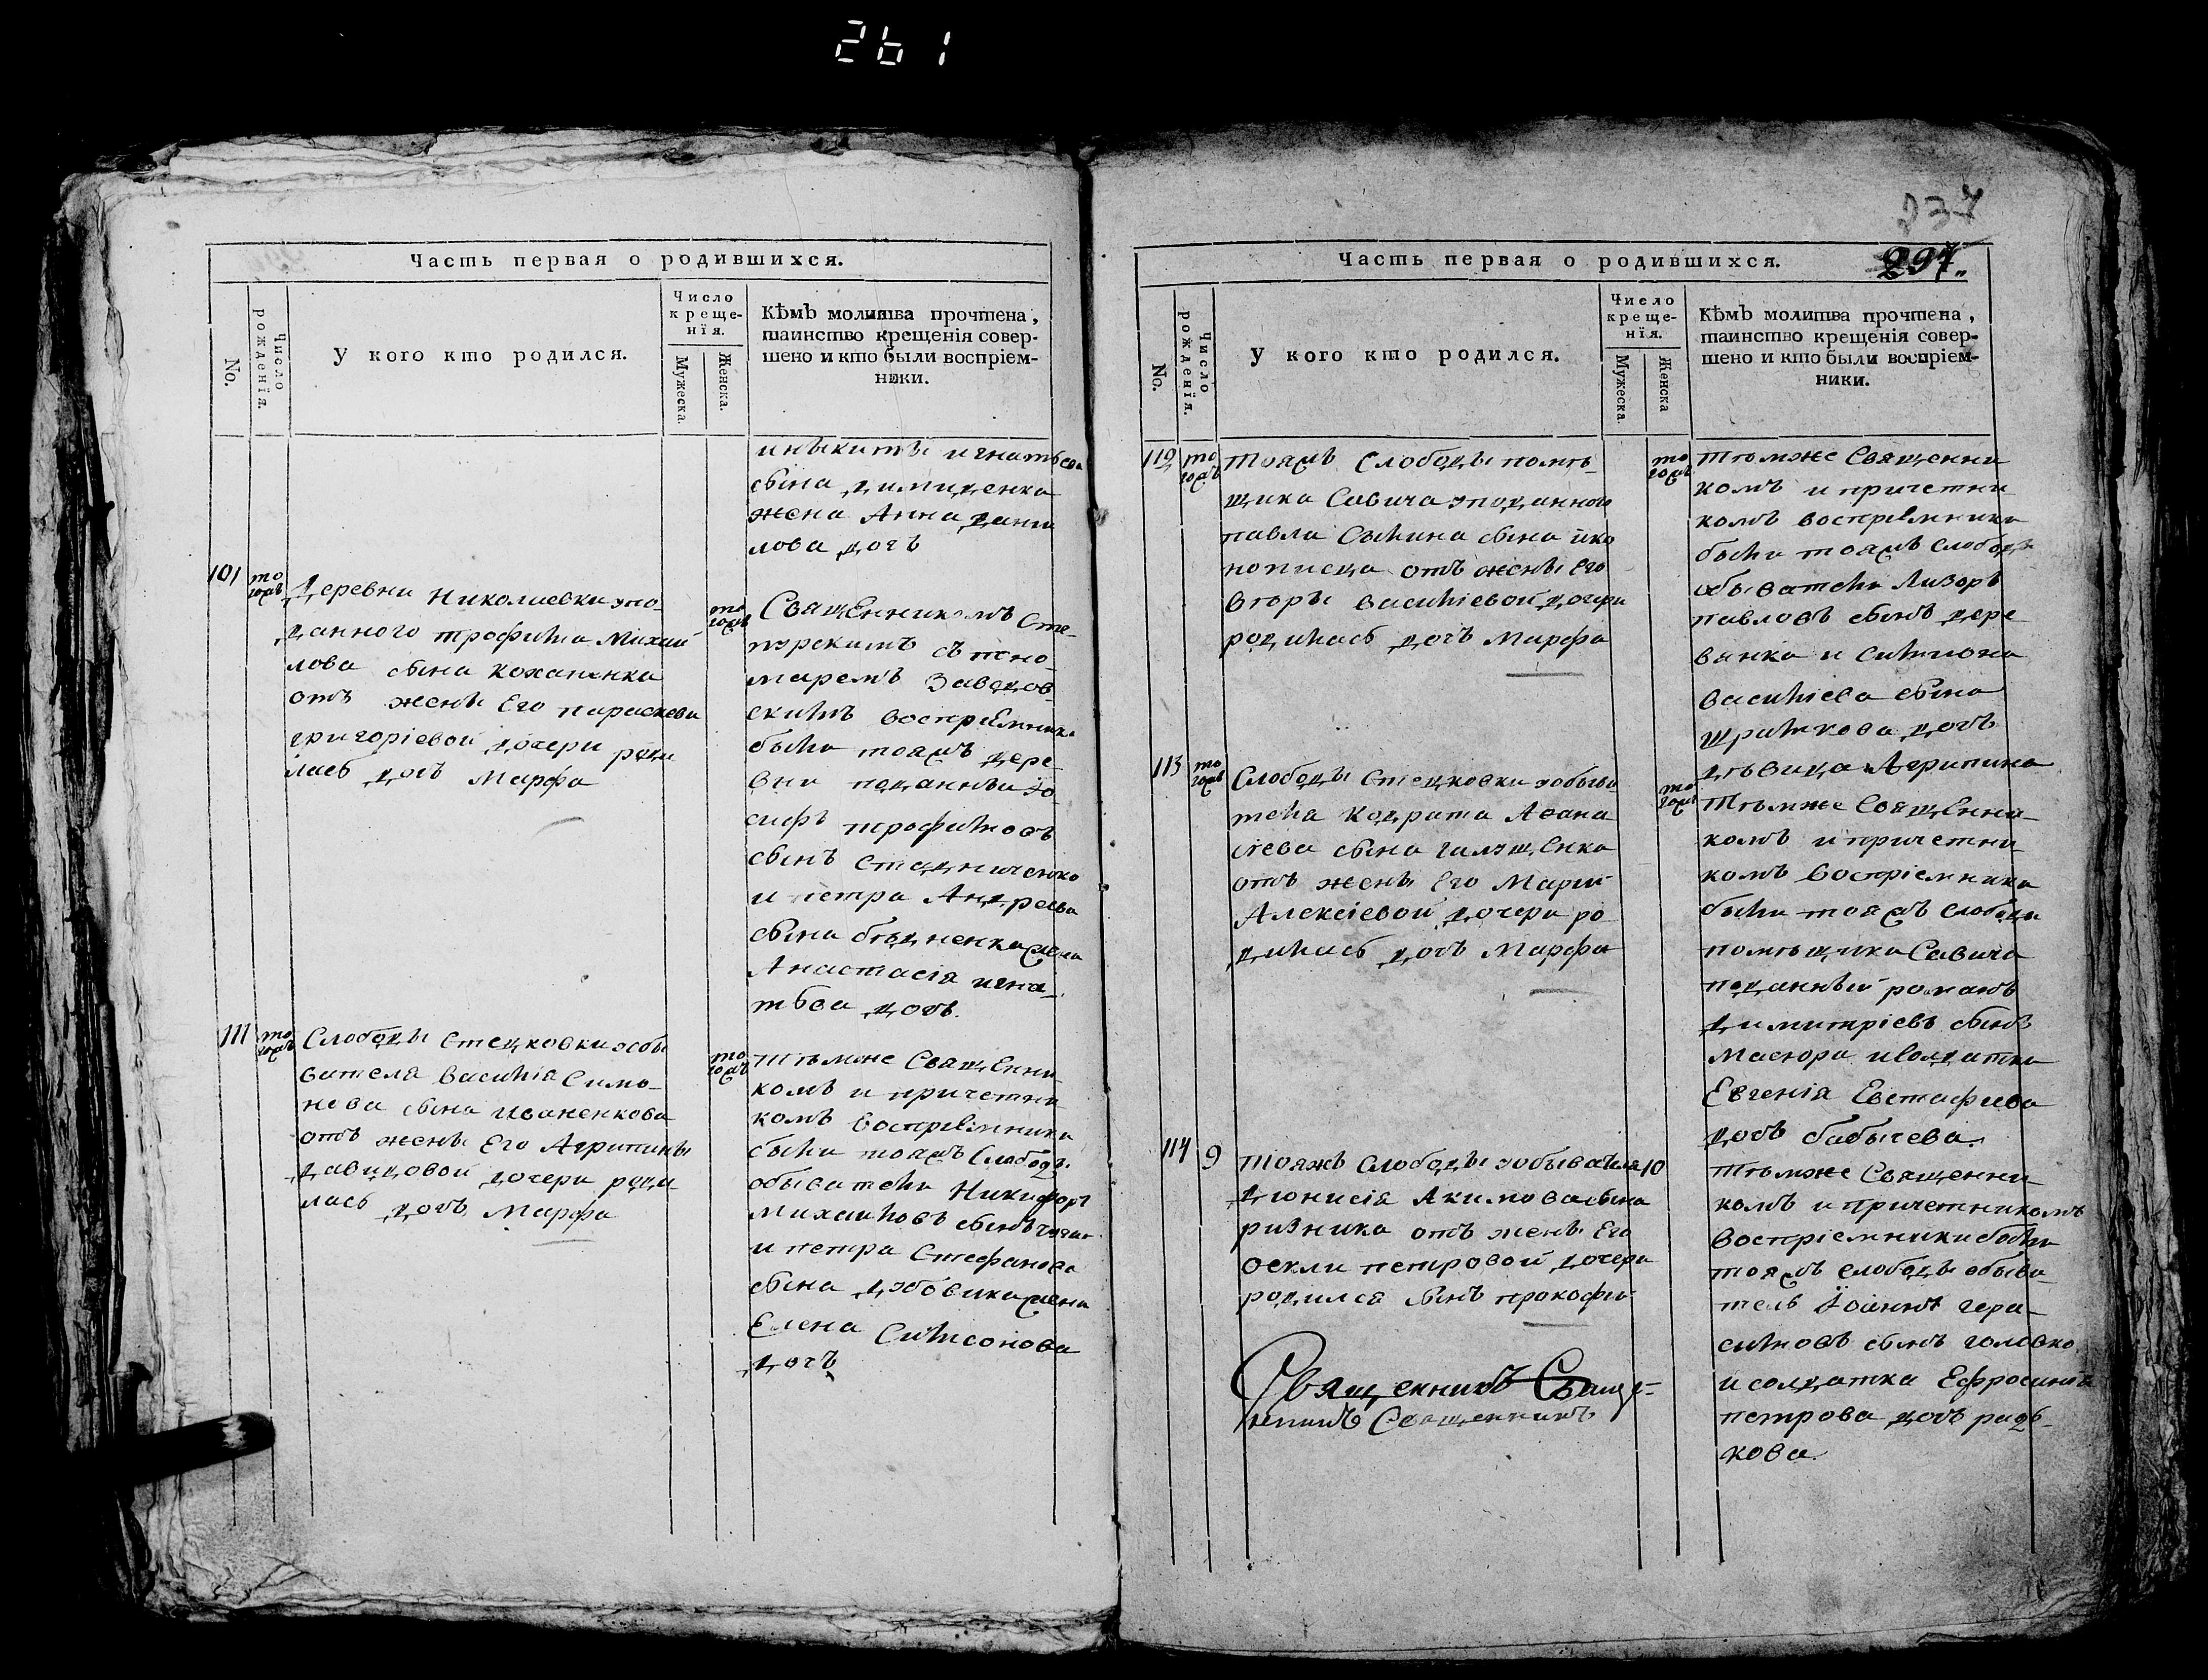 261
Часть первая о родившихся.
No.
Число рожденїя.
У кого кто родился.
Число крещенїя.
Мужеска.
Женска.
Кѣмъ молитва прочтена,
таинство крещенія совер-
шено и кто были воспріем-
ники.
и никиты игнатьева
сына димиденка
жена Анна дани
лова дочъ
101
тогожъ
Деревни Николаевки упо-
данного трофима Михай
лова сына кохапенка
отъ жены Его параскеви
григоріевой дочери роди
лась дочъ Марфа
тогожъ
СвящЕнникомъ Сте-
пурскимъ съ поно-
маремъ Завадов
скимъ воспріЕмники
были тояжъ дере-
вни поданныи Іо-
сифъ трофимовъ
сынъ Стадниченко
и петра Андреева
сына бѣдненка жена
Анастасія игна-
тьва дочъ.
111
тогожъ
Слободы Стецковки уобы
вателя василія Симо-
нова сына иваненкова
отъ жены Его Агрипины
давидовой дочери роди
лась дочъ Марфа
тогожъ
тѣмже СвящЕнни-
комъ и причетни
комъ воспріемники
были тояжъ Слободы
обыватели Никифоръ
михаиловъ сынъ
и петра Стефанова
сына дубовика жена
Елена Симсонова
дочъ
237
297.
Часть первая о родившихся.
No.
Число рожденїя.
У кого кто родился.
Число крещенїя.
Мужеска
Женска
Кѣмъ молитва прочтена,
таинство крещенія совер-
шено и кто были воспріем-
ники.
112
тогожъ
тояжъ Слободы помѣ-
щика Савича уподанного
павла Сынина сына ико
нописца отъ жены Его
вторы василіевой дочери
родилась дочъ Марфа
тогожъ
тѣмже Священни
комъ и причетни
комъ воспріемники
были тояжъ слободы
обыватели Лизоръ
павловъ сынъ дере
вянка и Симиона
василіева сына
шрамкова дочъ
дѣвица Агрипина
113
тогожъ
Слободы Стецковки уобыва
теля кодрата Аѳана
сіева сына галущЕнка
отъ жены Его Маріи
Алексіевой дочери ро
дилась дочъ Марфа
тогожъ
Тѣмже СвящЕнни-
комъ и причетни-
комъ воспріемники
были тояжъ слободы
помѣщика Савича
поданный романъ
димитріевъ сынъ
масюра и солдатка
Евгенія Евстафиева
дочъ бабычева.
114
9
тояжъ Слободы уобывателя
Діонисія Акимова сына
ризника отъ жены Его
ѳекли петровой дочери
родился сынъ прокофій
10
тѣмже Священни-
комъ и причетникомъ
воспріемники были
тояжъ слободы обыва-
тель Іоаннъ гера-
симовъ сынъ головко
и солдатка Ефросинія
петрова дочъ радь-
кова.
Священникъ
Священникъ